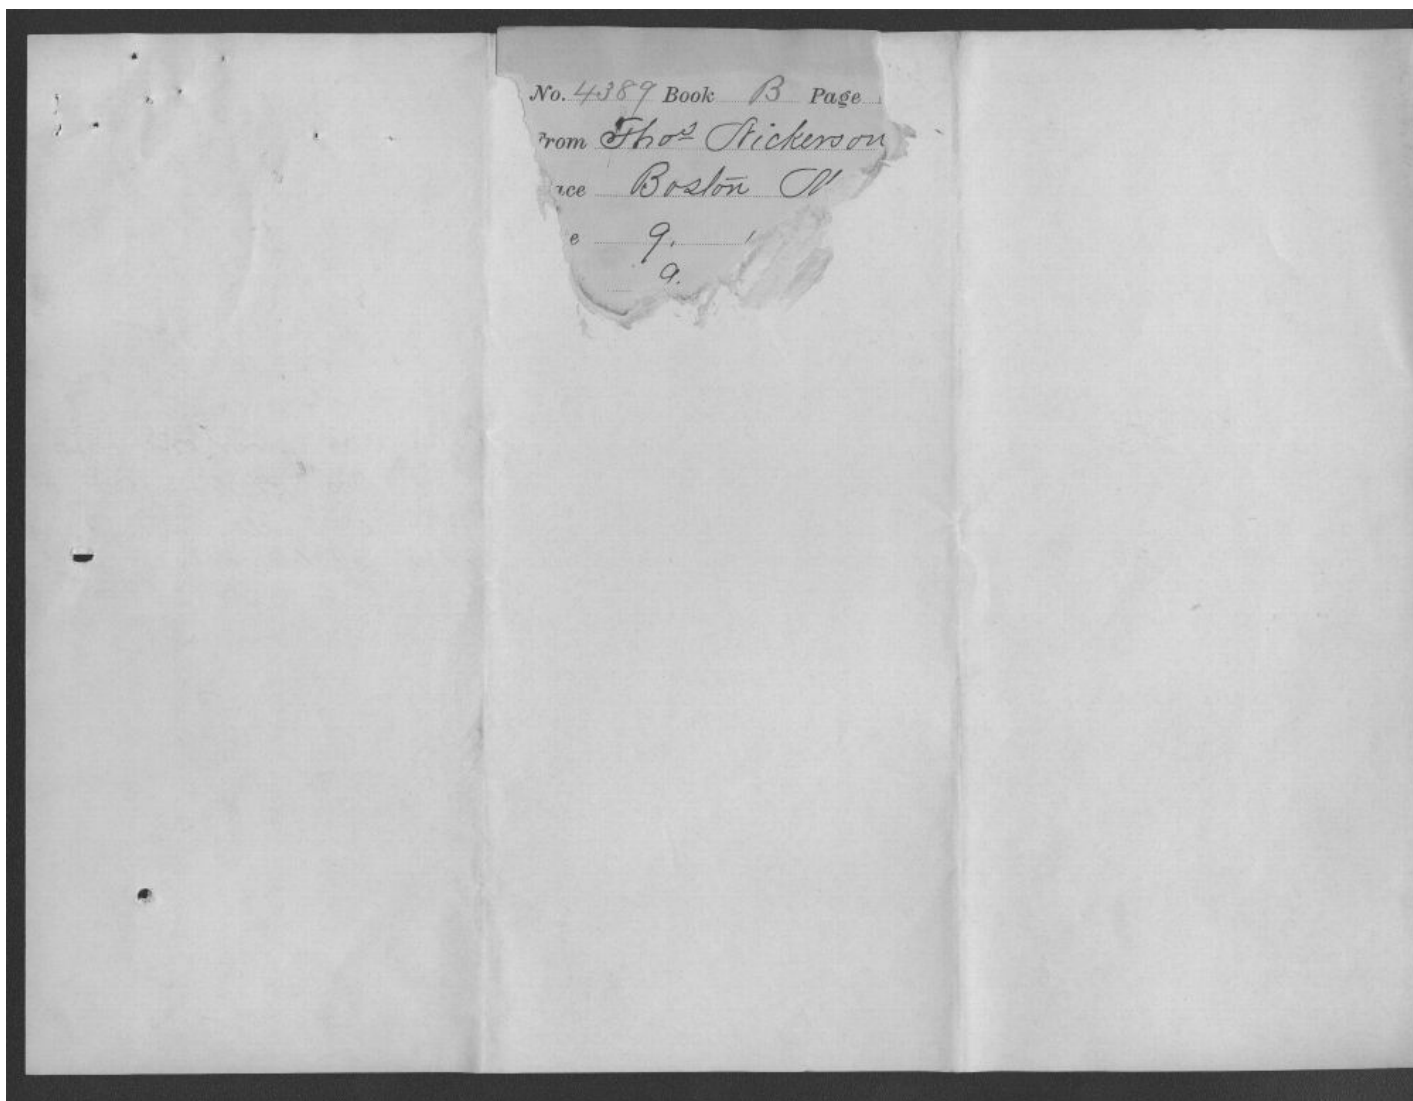 No. 4389 Book B Page
From Thos Nickerson
ace Boston M
e 9.
a.